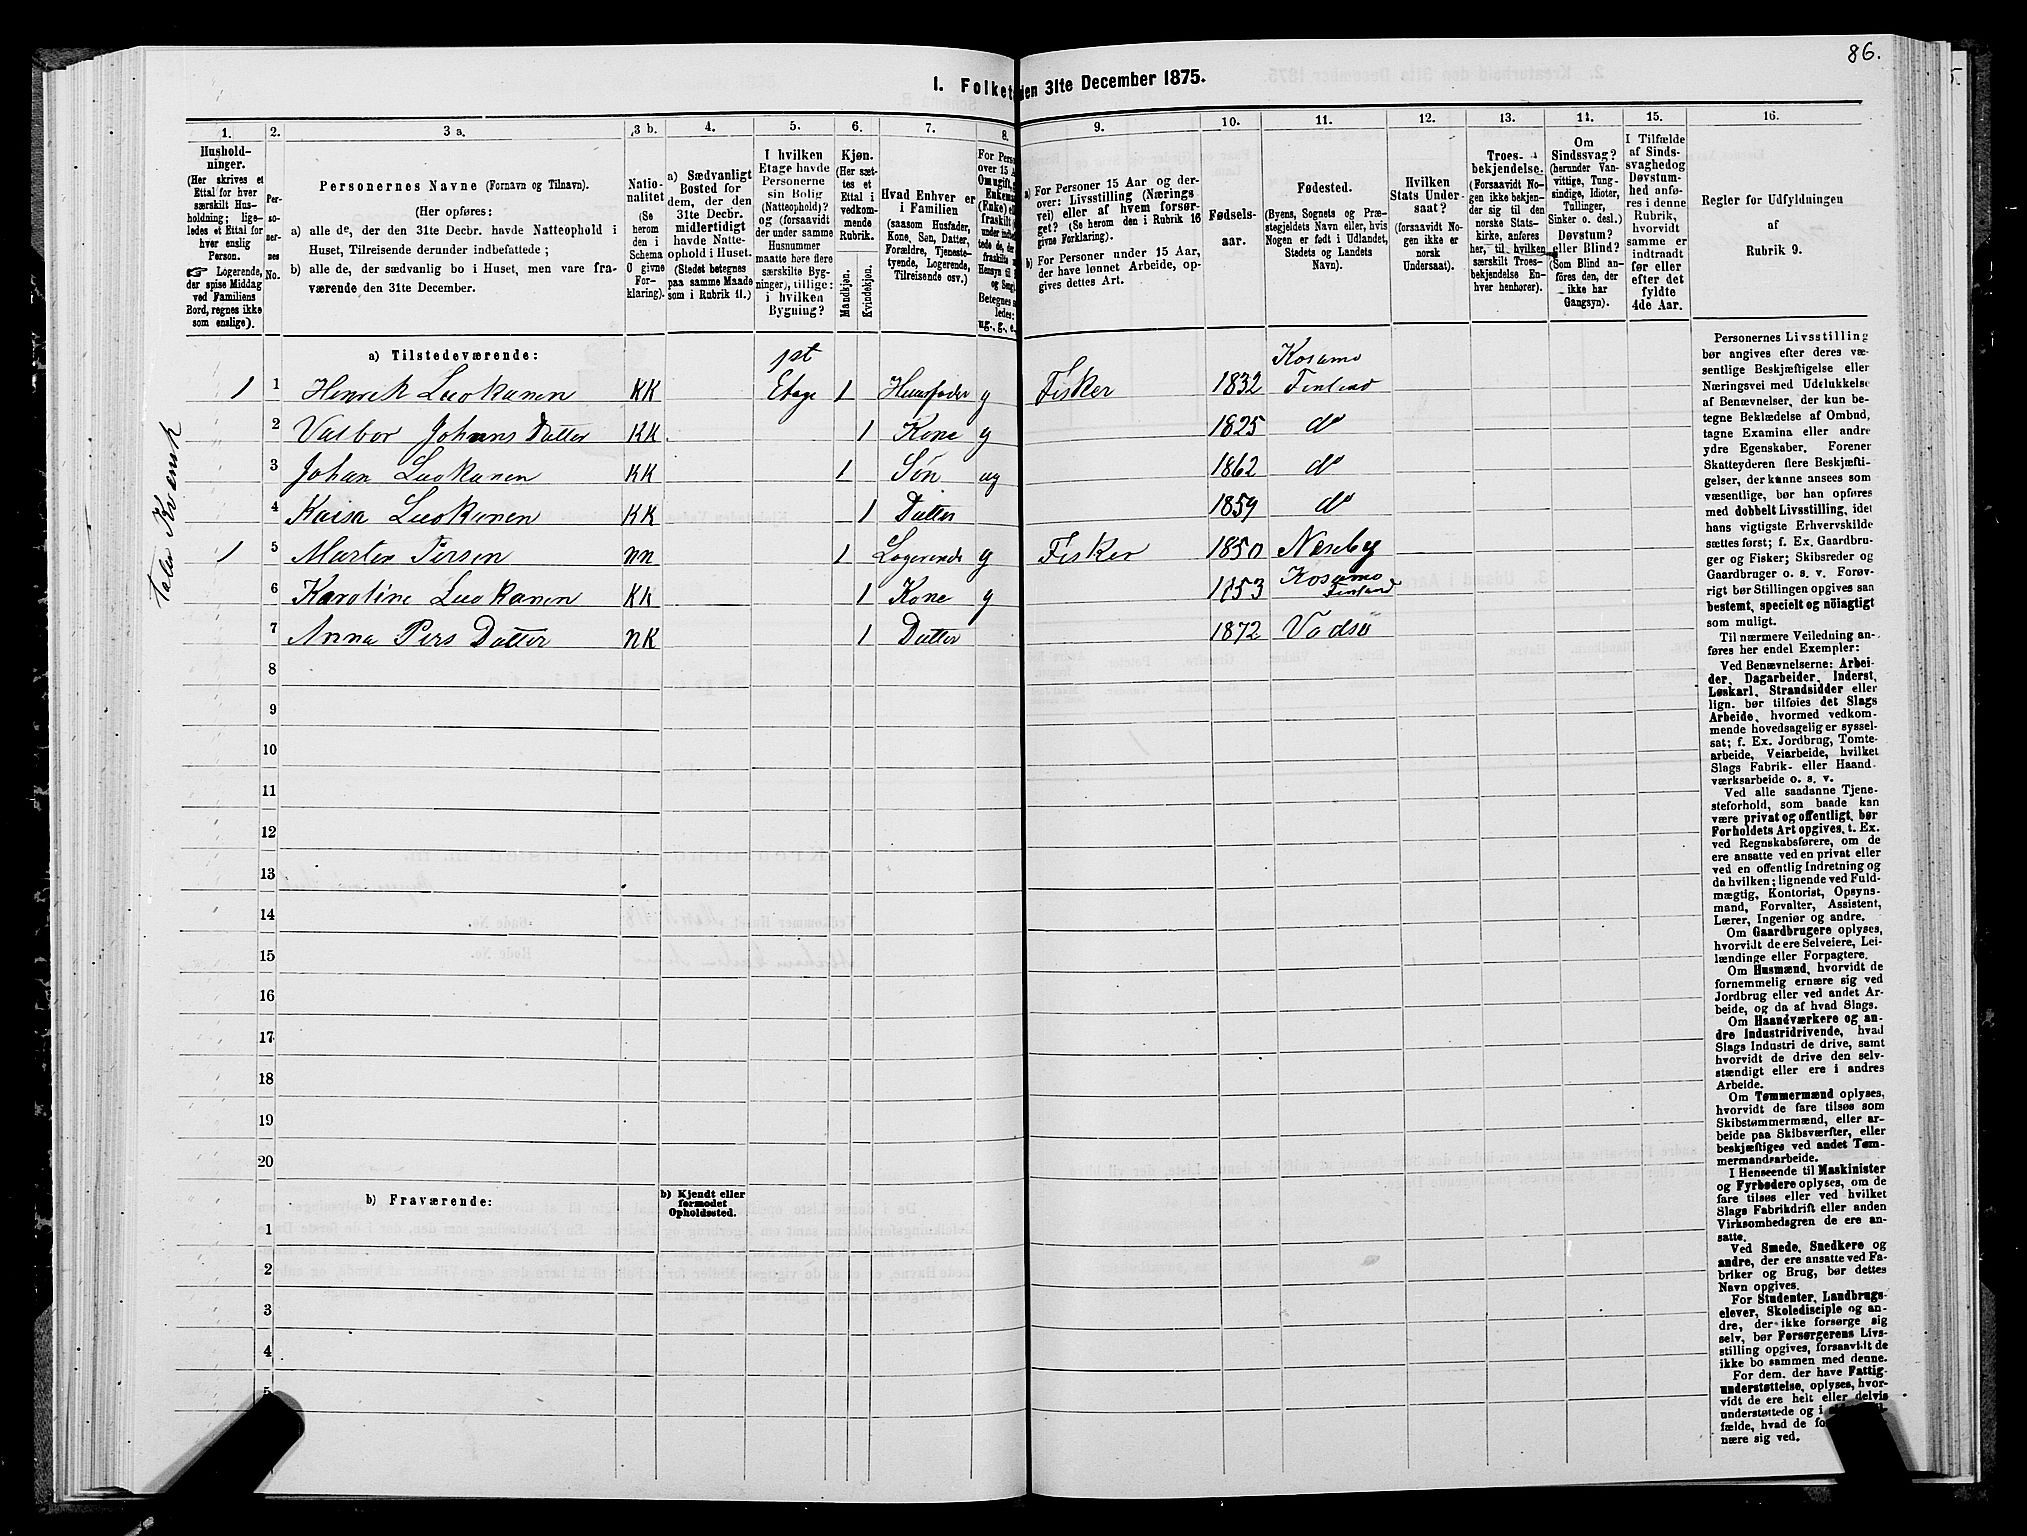 86.
1. Folket
den 31te December 1875.
1.
Hushold-
ninger.
(Her skrives et
Ettal for hver
særskilt Hus-
holdning; lige-
ledes et Ettal for
hver enslig
Person.
☞ Logerende,
der spise Middag
ved Familiens
Bord, regnes ikke
som enslige).
2.
Per-
so-
ner-
nes
No.
3 a.
Personernes Navne (Fornavn og Tilnavn).
(Her opføres:
a) alle de, der den 31te Decbr. havde Natteophold i
Huset, Tilreisende derunder indbefattede;
b) alle de, der sædvanlig bo i Huset, men vare fra-
værende den 31te December.
3 b.
Natio-
nalitet
(Se
herom
den i
Schema
O givne
For-
klaring).
4.
a) Sædvanligt
Bosted for
dem, der den
31te Decbr.
midlertidigt
havde Natte-
ophold i Huset.
(Stedet betegnes
paa samme Maade
som i Rubrik 11.)
5.
I hvilken
Etage havde
Personerne
sin Bolig
(Natteophold)?
og (forsaavidt
der under samme
Husnummer
maatte høre flere
særskilte Byg-
ninger), tillige:
i hvilken
Bygning?
6.
Kjøn.
(Her sæt-
tes et
Ettal i
vedkom-
mende
Rubrik.
Mandkjøn.
Kvindekjøn.
7.
Hvad Enhver er
i Familien
(saasom Husfader,
Kone, Søn, Datter,
Forældre, Tjeneste-
tyende, Logerende,
Tilreisende osv.)
8.
For Pers
over 15 A
Om ugift,
Enkema
(Enke) el
fraskilt
under indb
tede de, d
fraskilte
Hensyn til
og Seng
Betegnes s
ledes:
ug., g., e.,
9.
a) For Personer 15 Aar og der-
over: Livsstilling (Nærings-
vei) eller af hvem forsør-
get? (Se herom i Rubrik 16
givne Forklaring).
b) For Personer under 15 Aar,
der have lønnet Arbeide, op-
gives dettes Art.
10.
Fødsels-
aar.
11.
Fødested.
(Byens, Sognets og Præ-
stegjeldets Navn eller, hvis
Nogen er født i Udlandet,
Stedets og Landets
Navn).
12.
Hvilken
Stats Under-
saat?
(forsaavidt No-
gen ikke er
norsk
Undersaat).
13.
Troes-
bekjendelse.
(Forsaavidt No-
gen ikke bekjen-
der sig til den
norske Stats-
kirke, anføres
her, til hvilken
særskilt Troes-
bekjendelse En-
hver henhører).
14.
Om
Sindssvag?
(herunder Van-
vittige, Tung-
sindige, Idioter,
Tullinger,
Sinker o. desl.)
Døvstum?
eller Blind?
(Som Blind an-
føres den, der
ikke har
Gangsyn).
15.
I Tilfælde
af Sinds-
svaghedog
Døvstum-
hed anfø-
res i denne
Rubrik,
hvorvidt
samme er
indtraadt
før eller
efter det
fyldte
4de Aar.
16.
Regler for Udfyldningen
af
Rubrik 9.
a) Tilstedeværende:
Taler Kvensk
1 1 Henrik Luokanen KK 1st Etage 1 Huusfader g Fisker 1832 Kosamo Finland
2 Valbor Johans Datter KK 1 Kone g 1825 do
3 Johan Luokanen KK 1 Søn ug 1862 do
4 Kaisa Luokanen KK 1 Datter 1859 do
1 5 Marten Persen nn 1 Logerende g Fisker 1850 Næseby
6 Karoline Luokanen KK 1 Kone g 1853 Kosamo Finland
7 Anna Pers Datter nK 1 Datter 1872 Vadsø
8
9
10
11
12
13
14
15
16
17
18
19
20
b) Fraværende:
b) Kjendt eller
formodet
Opholdssted.
1
2
3
4
5
Personernes Livsstilling
bør angives efter deres væ-
sentlige Beskjæftigelse eller
Næringsvei med Udelukkelse
af Benævnelser, der kun be-
tegne Beklædelse af Ombud,
tagne Examina eller andre
ydre Egenskaber. Forener
Skatteyderen flere Beskjæfti-
gelser, der kunne ansees som
væsentlige, bør han opføres
med dobbelt Livsstilling, idet
hans vigtigste Erhvervskilde
sættes først; f. Ex. Gaardbru-
ger og Fisker; Skibsreder og
Gaardbruger o. s. v. Forøv-
rigt bør Stillingen opgives saa
bestemt, specielt og nöiagtigt
som muligt.
Til nærmere Veiledning an-
føres her endel Exempler:
Ved Benævnelserne: Arbei-
der, Dagarbeider, Inderst,
Løskarl, Strandsidder eller
lign. bør tilføies det Slags
Arbeide, hvormed vedkom-
mende hovedsagelig er syssel-
sat; f. Ex. Jordbrug, Tomte-
arbeide, Veiarbeide, hvilket
Slags Fabrik- eller Haand-
værksarbeide o. s. v.
Ved alle saadanne Tjene-
steforhold, som baade kan
være privat og offentligt, bør
Forholdets Art opgives, t. Ex.
ved Regnskabsførere, om de
ere ansatte ved en privat eller
ved en offentlig Indretning og
da hvilken; lignende ved Fuld-
mægtig, Kontorist, Opsyns-
mand, Forvalter, Assistent,
Lærer, Ingeniør og andre.
Om Gaardbrugere oplyses,
hvorvidt de ere Selveiere, Lei-
lændinge eller Forpagtere.
Om Husmænd, hvorvidt de
fornemmelig ernære sig ved
Jordbrug eller ved andet Ar-
beide, og da af hvad Slags.
Om Haandværkere og an-
dre Industridrivende, hvad
Slags Industri de drive, samt
hvorvidt de drive den selv-
stændigt eller ere i andres
Arbeide.
Om Tømmermænd oplyses,
hvorvidt de fare tilsøs som
Skibstømmermænd, eller ar-
beide paa Skibsværfter, eller
beskjæftiges ved andet Tøm-
mermandsarbeide.
I Henseende til Maskinister
og Fyrbødere oplyses, om de
fare tilsøs eller ved hvilket
Slags Fabrikdrift eller anden
Virksomhedsgren de ere an-
satte.
Ved Smede, Snedkere og
andre, der ere ansatte ved Fa-
briker og Brug, bør dettes
Navn opgives.
For Studenter, Landbrugs-
elever, Skoledisciple og an-
dre, der ikke forsørge sig
selv, bør Forsørgerens Livs-
stilling opgives, forsaavidt de
ikke bo sammen med denne.
For dem, der have Fattig-
understøttelse, oplyses, hvor-
vidt de ere helt eller delvis
understøttede og i
fælde, hvad de for
nære sig ved.